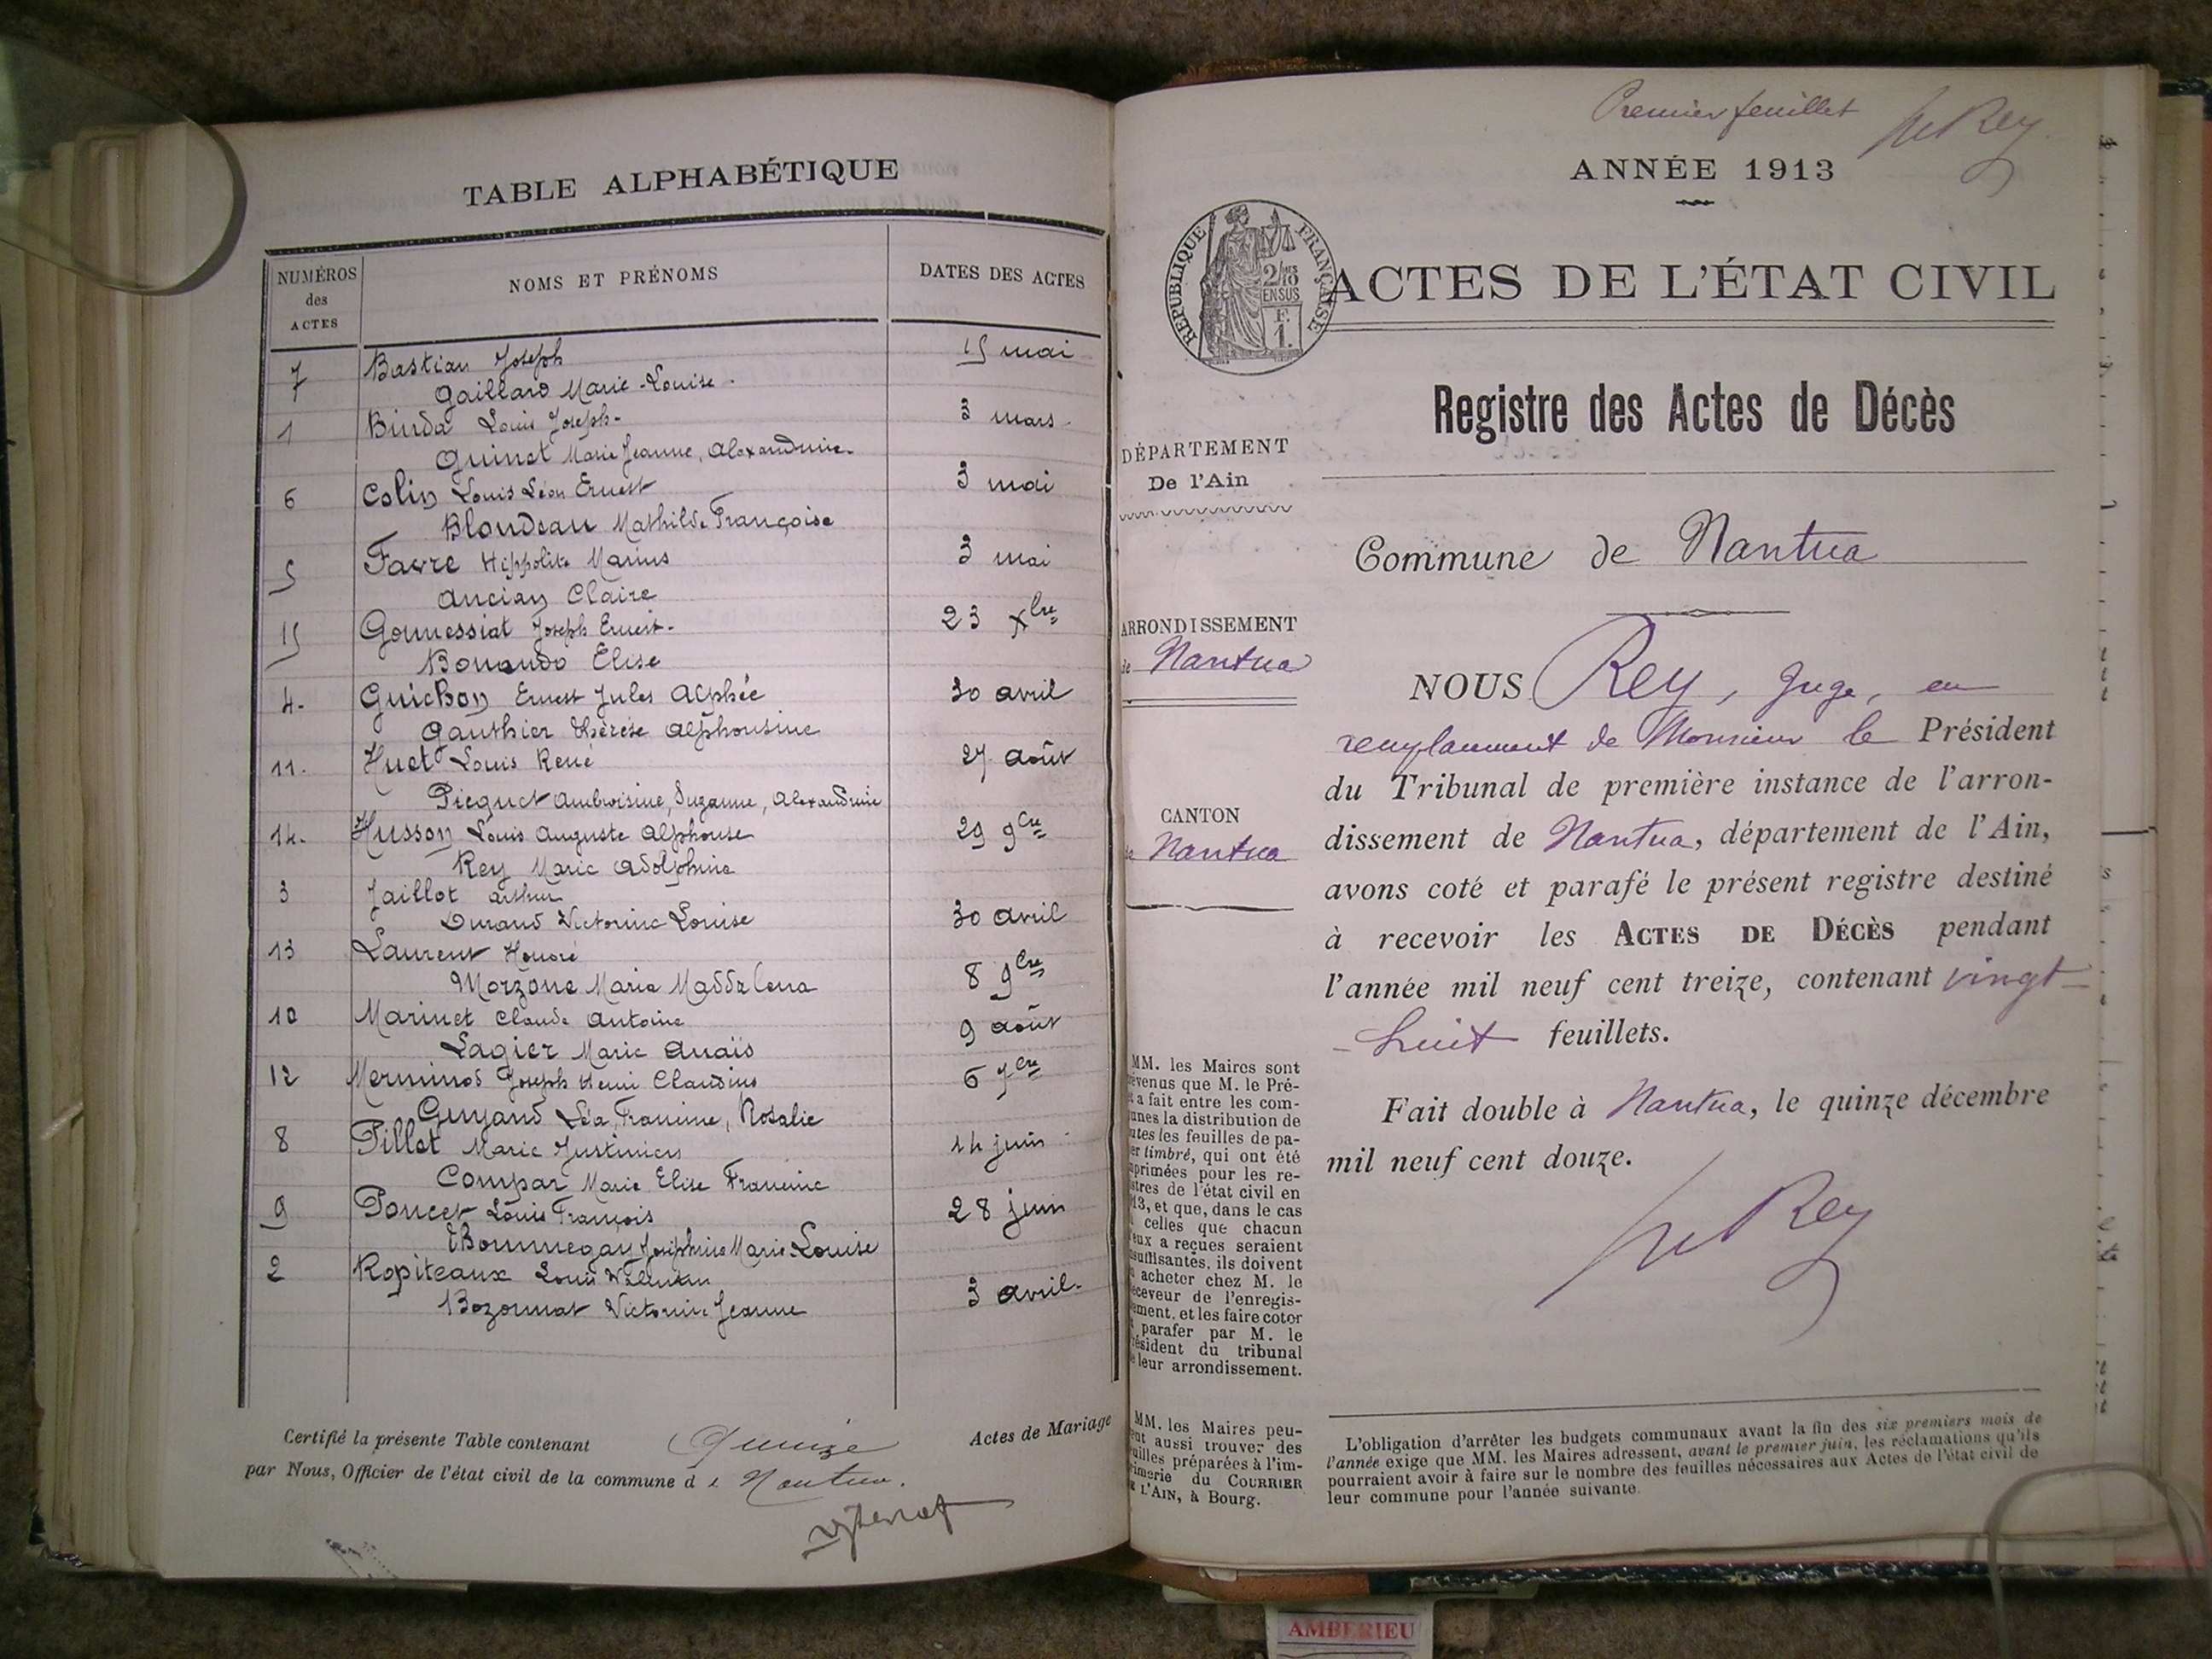 TABLE ALPHABÉTIQUE
NUMÉROS des ACTES NOMS ET PRÉNOMS DATES DES ACTES
7 Bastian Joseph 15 mai
Gaillard Marie-Louise
1 Binda Louis Joseph 3 mars
Guinet Marie Jeanne, Alexandrine
6 Colin Louis Léon Ernest 3 mai
Blondeau Mathilde Françoise
5 Favre Hippolite Marius 3 mai
Ancian Claire
15 Gonnessiat Joseph Ernest 23 Xbre
Bonando Elise
4. Guichon Ernest Jules Alphée 30 avril
Gauthier Thérèse Alphonsine
11. Huet Louis René 27 août
Picquet Ambroisine, Suzanne, Alexandrine
14. Husson Louis Auguste Alphonse 29 9bre
Rey Marie Adolphine
3 Jaillot Arthur
Durand Victorine Louise 30 avril
13 Laurent Honoré
Morzone Maria Maddalena 8 9bre
10 Marinet Claude Antoine
Lagier Marie Anaïs 9 août
12 Merminod Joseph Henri Claudius 6 7bre
Guyand Léa, Francine, Rosalie
8 Pillet Marie Justinien 14 juin
Compar Marie Elise Francine
9 Poncet Louis François 28 juin
Josephine Marie-Louise
2 Ropiteaux Louis
Bozonnat Victorine Jeanne 3 avril
Certifié la présente Table contenant Quinze Actes de Mariage
par Nous, Officier de l'état civil de la commune de Nantua.
Premier feuillet Rey
ANNÉE 1913
RÉPUBLIQUE FRANÇAISE
2/10 EN SUS
F. 1.
ACTES DE L'ÉTAT CIVIL
Registre des Actes de Décès
DÉPARTEMENT
De l'Ain
Commune de Nantua
ARRONDISSEMENT
de Nantua
CANTON
de Nantua
NOUS Rey, Juge, en
remplacement de Monsieur le Président
du Tribunal de première instance de l'arron-
dissement de Nantua, département de l'Ain,
avons coté et parafé le présent registre destiné
à recevoir les ACTES DE DÉCÈS pendant
l'année mil neuf cent treize, contenant vingt-
-huit feuillets.
Fait double à Nantua, le quinze décembre
mil neuf cent douze.
Rey
MM. les Maires sont
évenus que M. le Pré-
t a fait entre les com-
unes la distribution de
utes les feuilles de pa-
er timbré, qui ont été
primées pour les re-
stres de l'état civil en
13, et que, dans le cas
celles que chacun
eux a reçues seraient
suffisantes, ils doivent
acheter chez M. le
ceveur de l'enregis-
ement, et les faire coter
parafer par M. le
résident du tribunal
e leur arrondissement.
MM. les Maires peu-
ent aussi trouver des
uilles préparées à l'im-
rimerie du COURRIER
E L'AIN, à Bourg.
L'obligation d'arrêter les budgets communaux avant la fin des six premiers mois de
l'année exige que MM. les Maires adressent, avant le premier juin, les réclamations qu'ils
pourraient avoir à faire sur le nombre des feuilles nécessaires aux Actes de l'état civil de
leur commune pour l'année suivante.
AMBERIEU